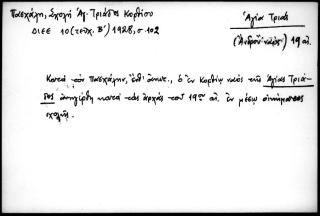 Πασχάλη, Σχολή Ἁγ. Τριάδος Κορθίου
ΔΙΕΕ 10 (τεῦχ. Β') 1928, σ 102
Ἁγία Τριάς
(Ἄνδρου· ναὸς) 19 αἰ.
Κατὰ τὸν Πασχάλην, ἔνθ' ἀνωτ., ὁ ἐν Κορθίῳ ναὸς τῆς Ἁγίας Τριά-
δος ἀνηγέρθη κατὰ τὰς ἀρχὰς τοῦ 19ου αἰ. ἐν μέσῳ οἰκήματος
σχολῆς.